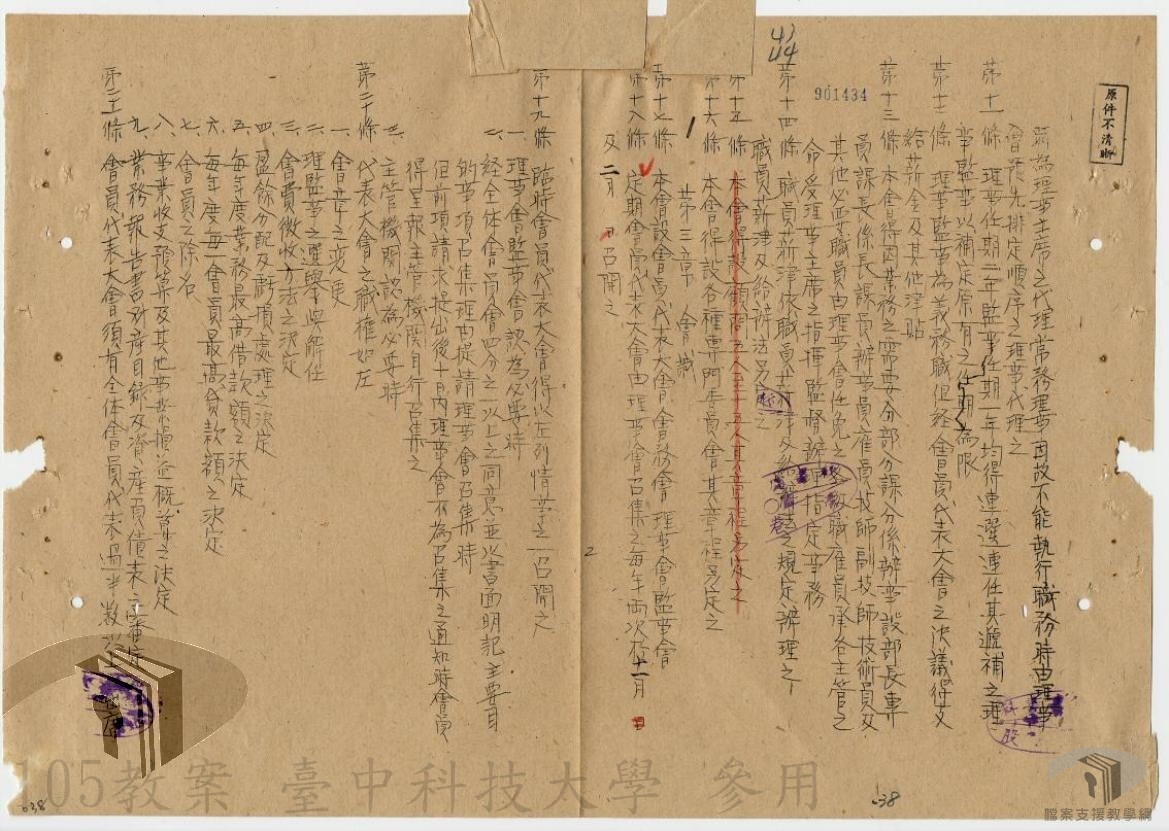 44
901434
原件不清晰
蒔為理事主席之代理常務理事因故不能執行職務時由理事
會預先排定順序之理事代理之
第十一條 理事任期二年監事任期一年均得連選連任其遞補之理
事監事以補足原有之任期為限
第十二條 理事監事為義務職但經會員代表大會之決議得支
給薪金及其他津貼
第十三條 本會得因業務之需要分部分課分係辦事設部長專
員課長係長課員辦事員雇員技師副技師技術員及
其他必要職員由理事會任免之 各級職雇員承各主管之
命受理事主席之指揮監督辦理指定事務
第十四條 職員薪津依職員 之規定辦理之
職員薪津及給辦法另定之
第十五條 本會得設顧問五人至十五人其章程另定之
第十六條 本會得設各種專門委員會其章程另定之
第三章 會議
第十七條 本會設會員代表大會會務會理事會監事會
第十八條 定期會員代表大會由理事會召集之每年兩次於十一月
及二月 召開之
2
第十九條 臨時會員代表大會得以左列情事之一召開之
一、理事會監事會認為必要時
二、經全体會員會四分之一以上之同意並以書面明記主要目
的事項召集理由提請理事會召集時
但前項請求提出後十日內理事會不為召集之通知時會員
得呈報主管機關自行召集之
三、主管機關認為必要時
第二十條 代表大會之職權如左
一、會章之変更
二、理監事之選舉與解任
三、會費徵收方法之決定
四、盈餘分配及虧損處理之決定
五、每年度業務最高借款額之決定
六、每年度每一會員最高貸款額之決定
七、會員之除名
八、事業收支預算及其他事業損益概算之決定
九、業務報告書財產目錄及資產負債表之審
第二十一條 會員代表大會須有全体會員代表過半數以上
038
038
105教案 臺中科技大學 參用
檔案支援教學網